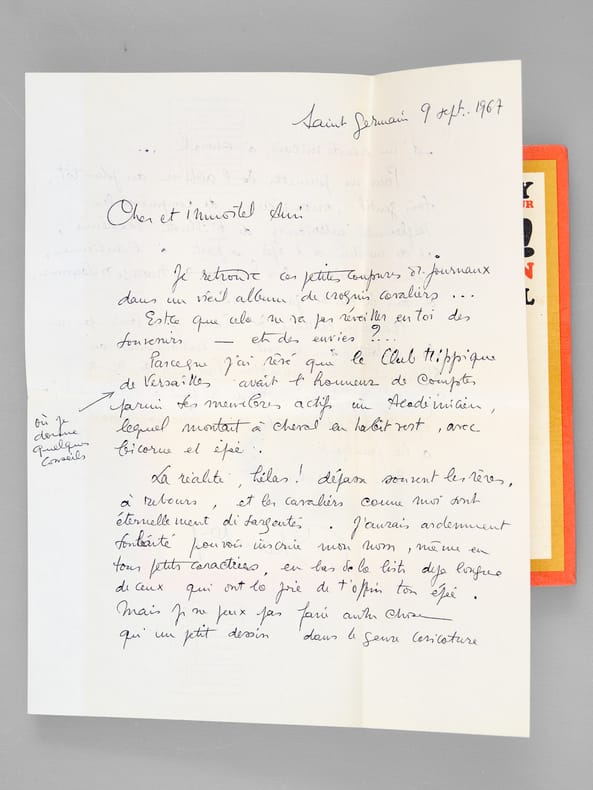 Saint Germain 9 sept. 1967
Cher et immortel Ami
Je retrouve ces petites coupures de journaux
dans un vieil album de croquis cavaliers ...
Est-ce que cela ne va pas réveiller en toi des
souvenirs — et des envies ?...
Parceque j'ai rêvé que le Club Hippique
de Versailles avait l'honneur de compter
parmi ses membres actifs un Académicien,
lequel montait à cheval en habit vert, avec
bicorne et épée.
où je
donne
quelques
conseils
La réalité, hélas! dépasse souvent les rêves,
à rebours, et les cavaliers comme moi sont
éternellement désargentés. J'aurais ardemment
souhaité pouvoir inscrire mon nom, même en
tous petits caractères, en bas de la liste déjà longue
de ceux qui ont la joie de t'offrir ton épée.
Mais je ne peux pas faire autre chose
qu'un petit dessin dans le genre caricature
Y
UR
!
N
L